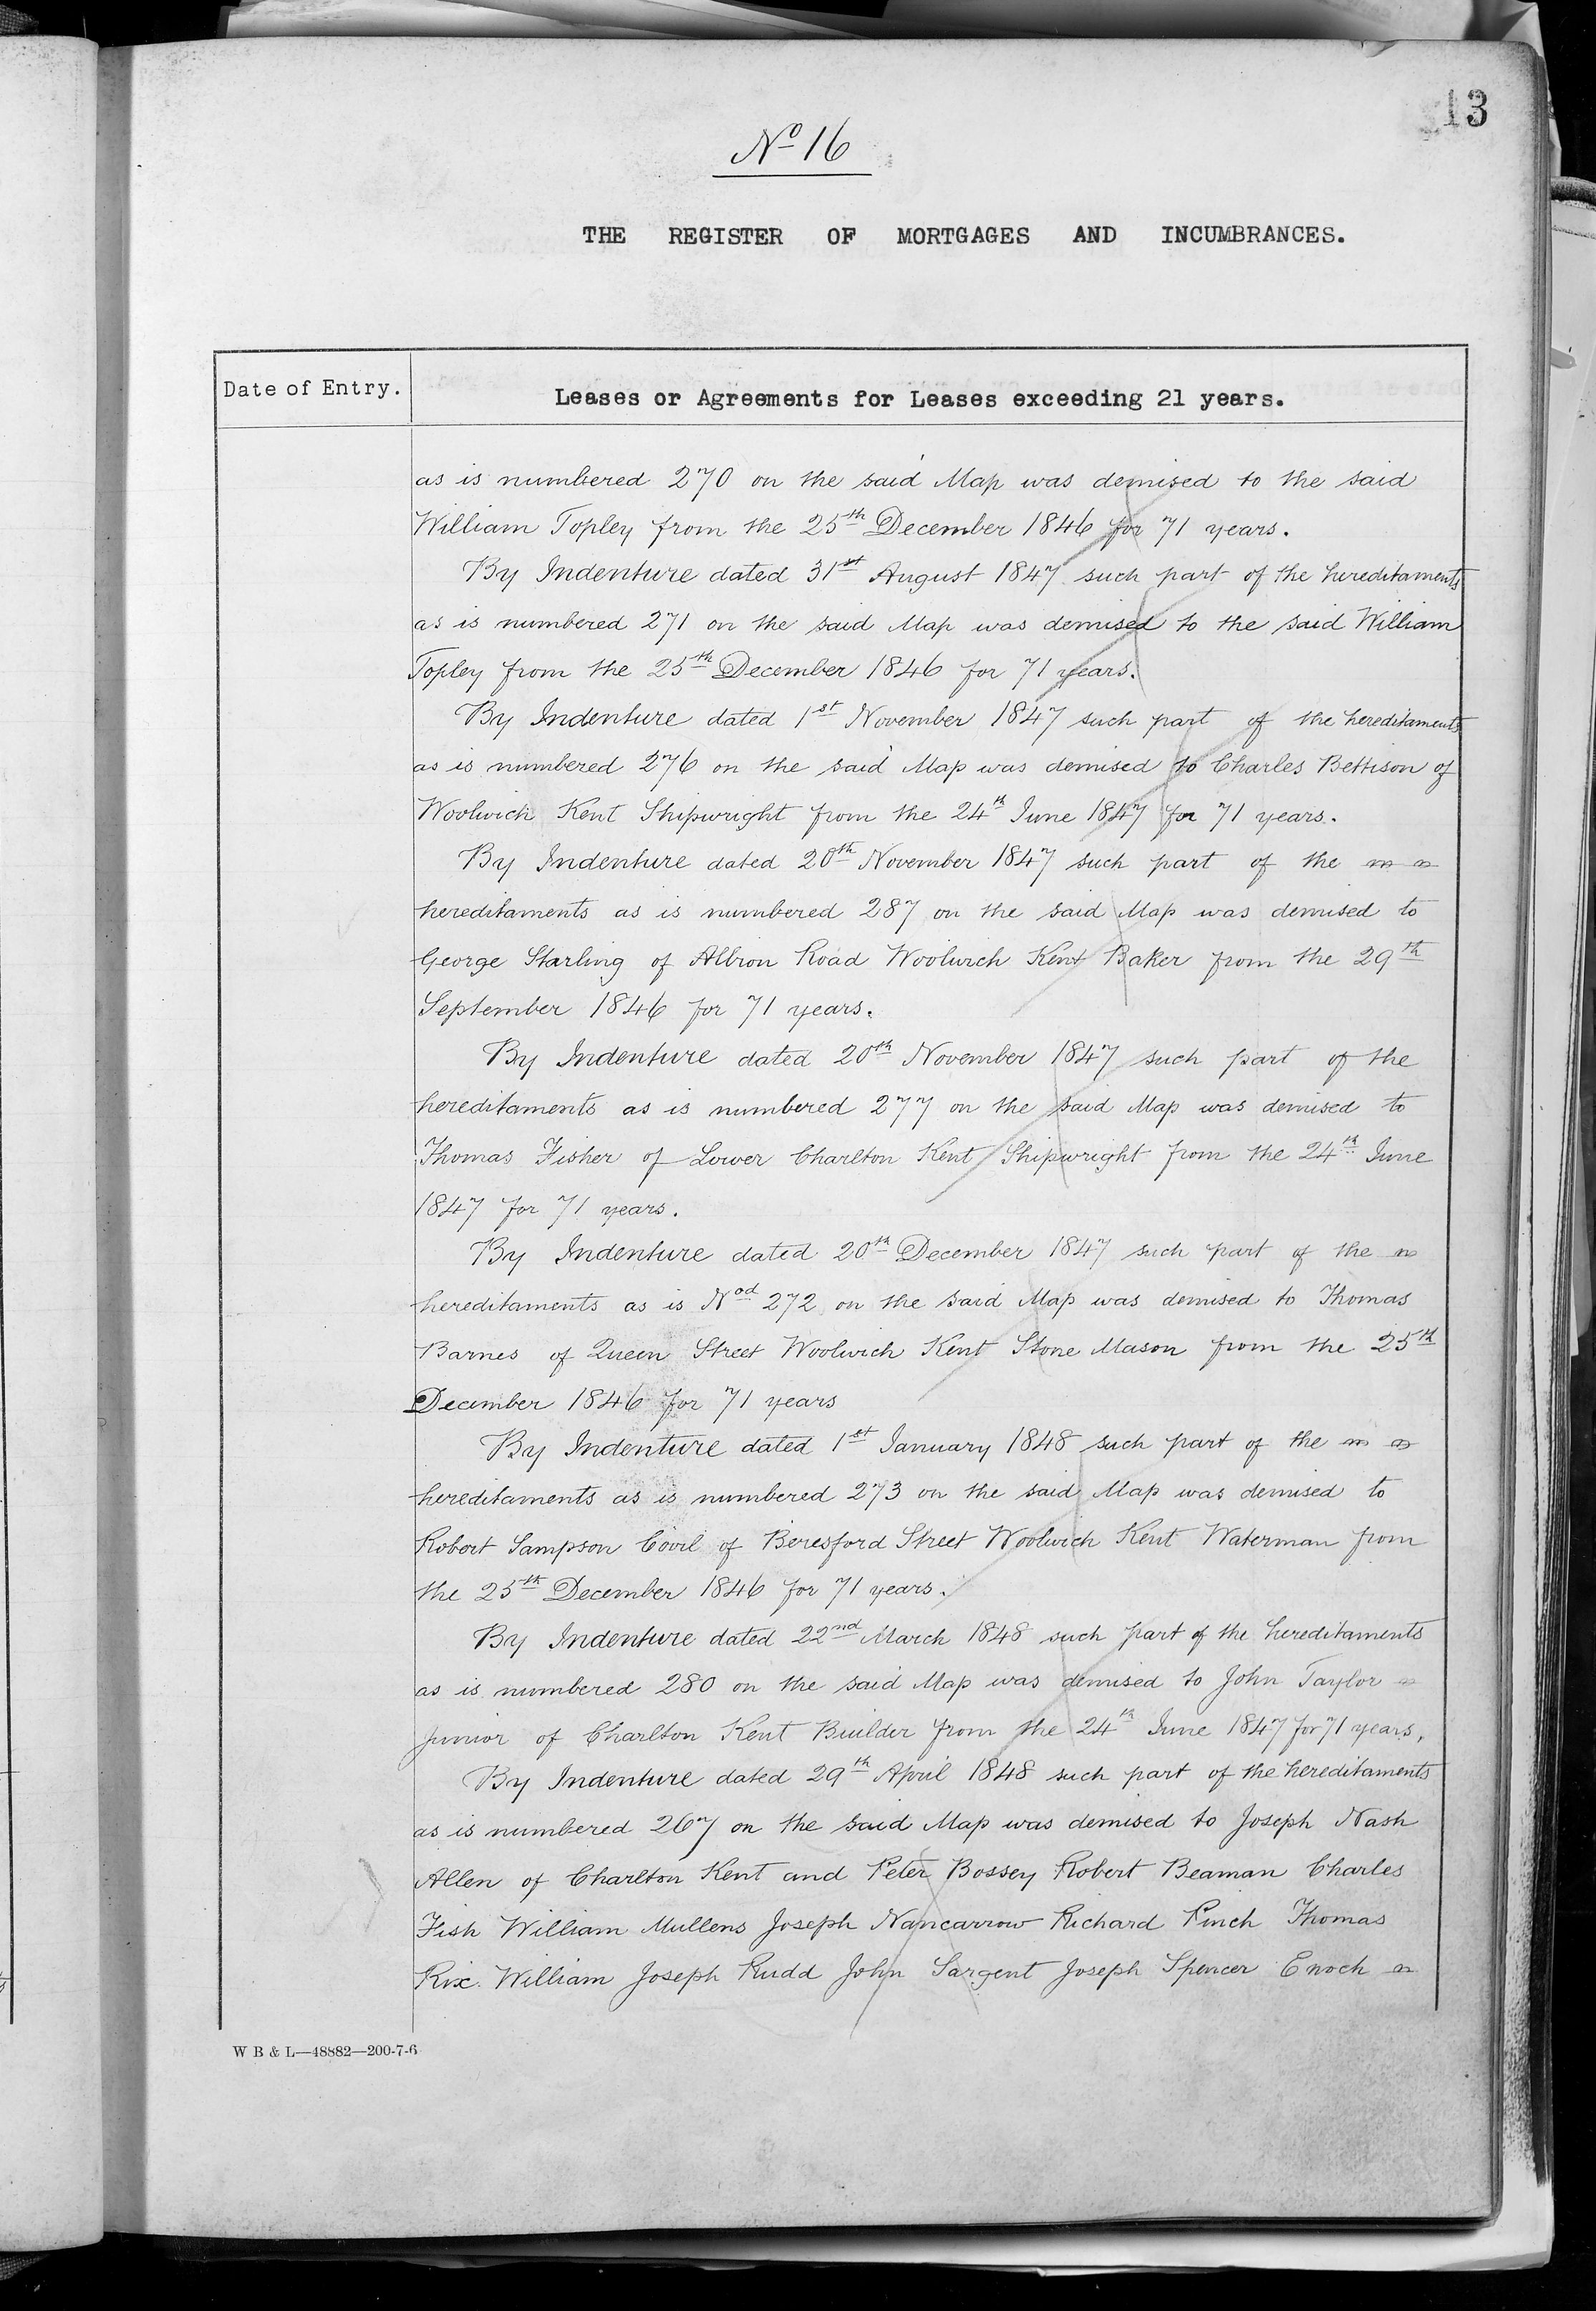 13
No 16
THE REGISTER OF MORTGAGES AND INCUMBRANCES.
Date of Entry.
Leases or Agreements for Leases exceeding 21 years.
as is numbered 270 on the said Map was demised to the said
William Topley from the 25th December 1846 for 71 years.
By Indenture dated 31st August 1847 such part of the hereditaments
as is numbered 271 on the said Map was demised to the said William
Topley from the 25th December 1846 for 71 years.
By Indenture dated 1st November 1847 such part of the hereditaments
as is numbered 276 on the said Map was demised to Charles Bettison of
Woolwich Kent Shipwright from the 24th June 1847 for 71 years.
By Indenture dated 20th November 1847 such part of the
hereditaments as is numbered 287 on the said Map was demised to
George Starling of Albion Road Woolwich Kent Baker from the 29th
September 1846 for 71 years.
By Indenture dated 20th November 1847 such part of the
hereditaments as is numbered 277 on the said Map was demised to
Thomas Fisher of Lower Charlton Kent Shipwright from the 24th June
1847 for 71 years.
By Indenture dated 20th December 1847 such part of the
hereditaments as is Nod 272 on the said Map was demised to Thomas
Barnes of Queen Street Woolwich Kent Stone Mason from the 25th
December 1846 for 71 years
By Indenture dated 1st January 1848 such part of the
hereditaments as is numbered 273 on the said Map was demised to
Robert Sampson of Beresford Street Woolwich Kent Waterman from
the 25th December 1846 for 71 years.
By Indenture dated 22nd March 1848 such part of the hereditaments
as is numbered 280 on the said Map was demised to John Taylor
junior of Charlton Kent Builder from the 24th June 1847 for 71 years.
By Indenture dated 29th April 1848 such part of the hereditaments
as is numbered 267 on the said Map was demised to Joseph Nash
Allen of Charlton Kent and Peter Bossey Robert Beaman Charles
Fish William Mullens Joseph Nancarrow Richard Pinch Thomas
Rix William Joseph Rudd John Sargent Joseph Spencer Enoch
W B & L—48882—200-7-6